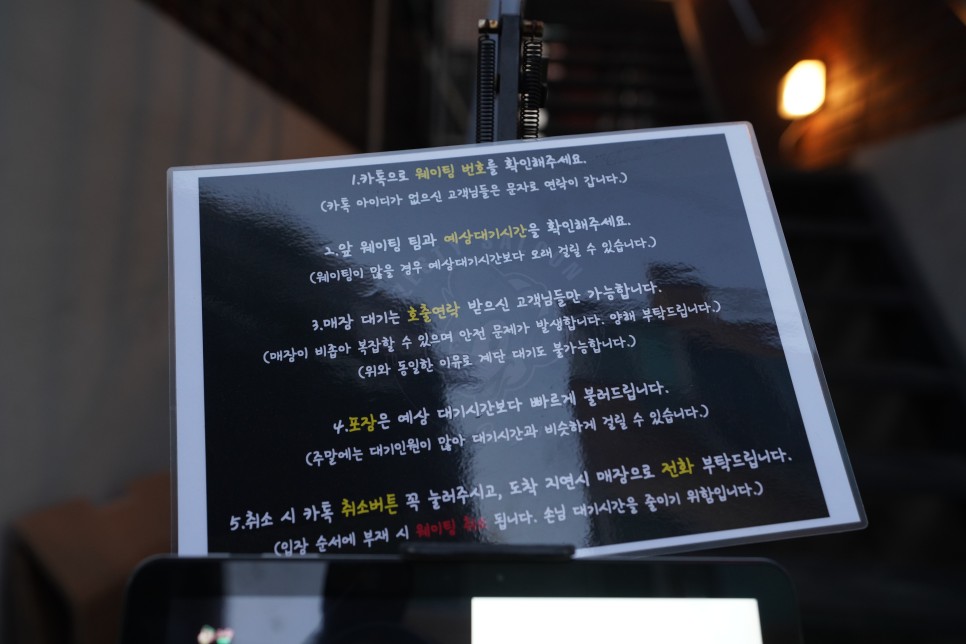 1.카톡으로 웨이팅 번호를 확인해주세요.
(카톡 아이디가 없으신 고객님들은 문자로 연락이 갑니다.)
2.앞 웨이팅 팀과 예상대기시간을 확인해주세요.
(웨이팅이 많을 경우 예상대기시간보다 오래 걸릴 수 있습니다.)
3.매장 대기는 호출연락 받으신 고객님들만 가능합니다.
(매장이 비좁아 복잡할 수 있으며 안전 문제가 발생합니다. 양해 부탁드립니다.)
(위와 동일한 이유로 계단 대기도 불가능합니다.)
4.포장은 예상 대기시간보다 빠르게 불러드립니다.
(주말에는 대기인원이 많아 대기시간과 비슷하게 걸릴 수 있습니다.)
5.취소 시 카톡 취소버튼 꼭 눌러주시고, 도착 지연시 매장으로 전화 부탁드립니다.
(입장 순서에 부재 시 웨이팅 취소 됩니다. 손님 대기시간을 줄이기 위함입니다.)